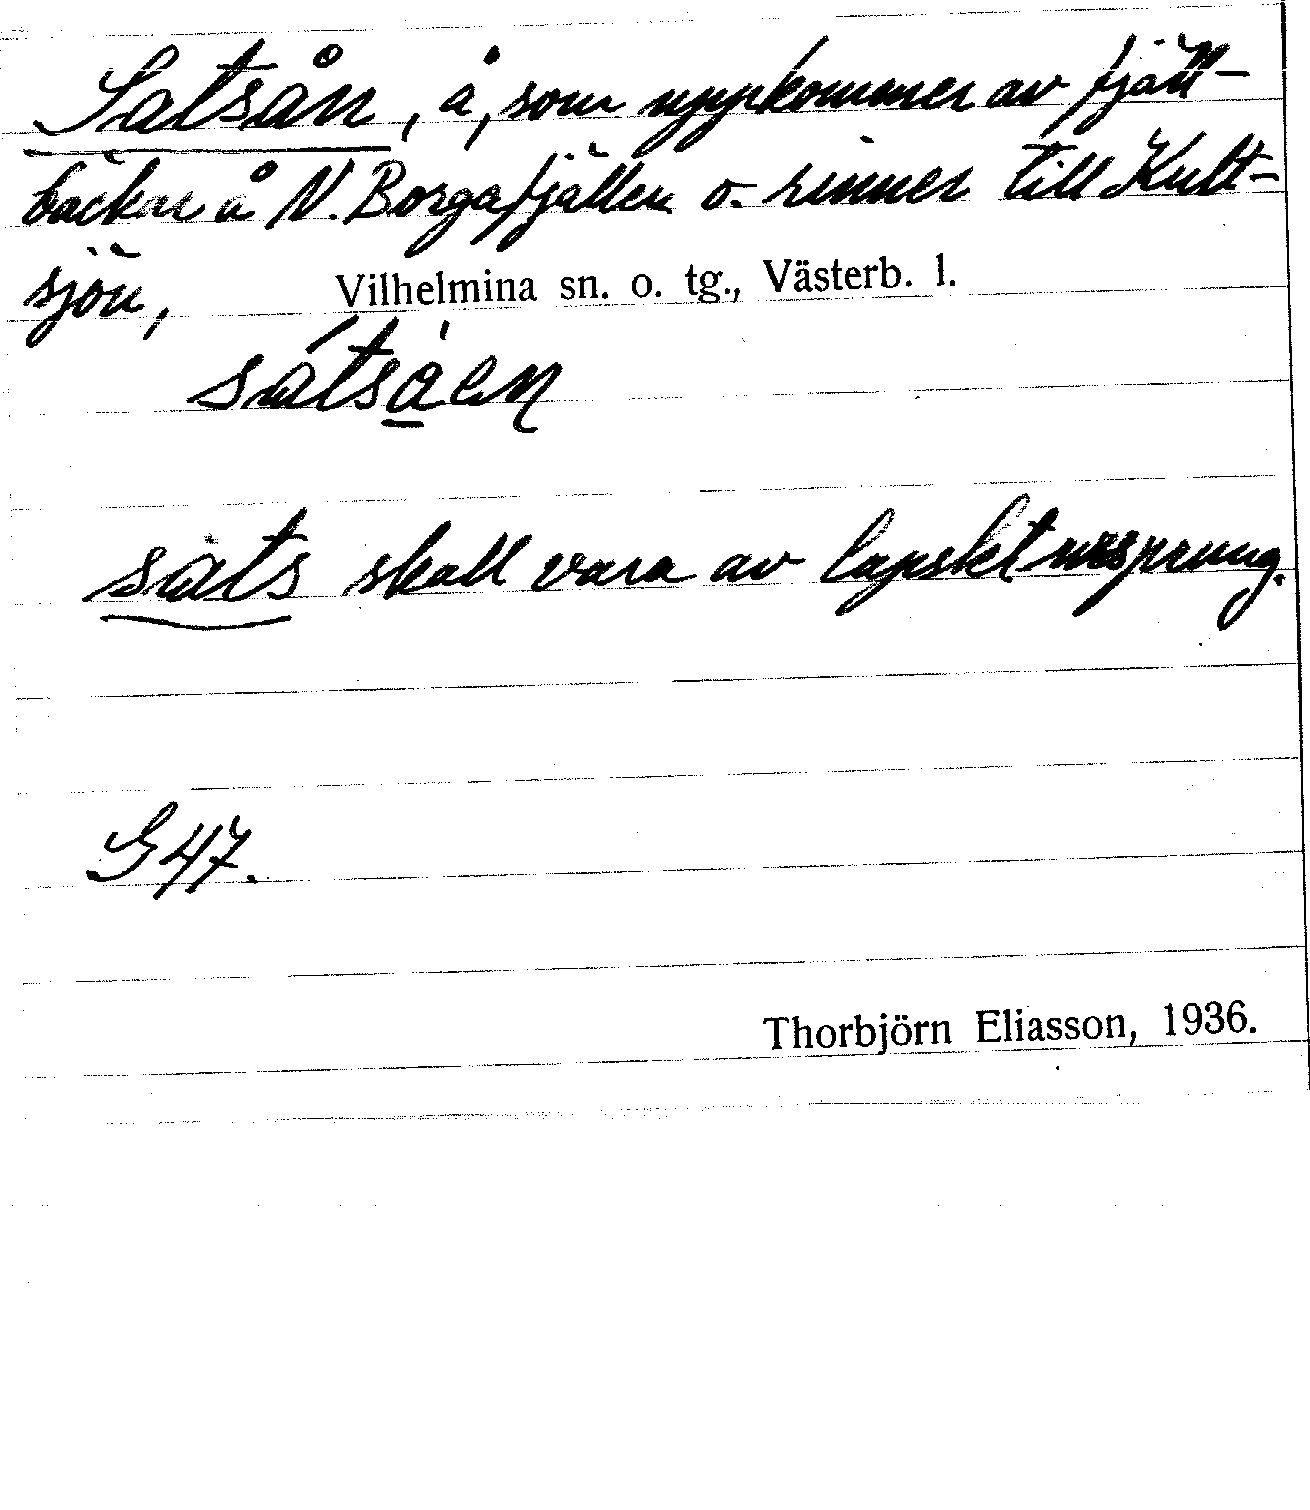 Satsån, å, som uppkommer av fjäll-
bäckar å N. Borgafjällen o. rinner till Kult-
sjön, Vilhelmina sn. o. tg., Västerb. l.
sátsa̲'en
sats skall vara av lapskt ursprung.
G 47.
Thorbjörn Eliasson, 1936.